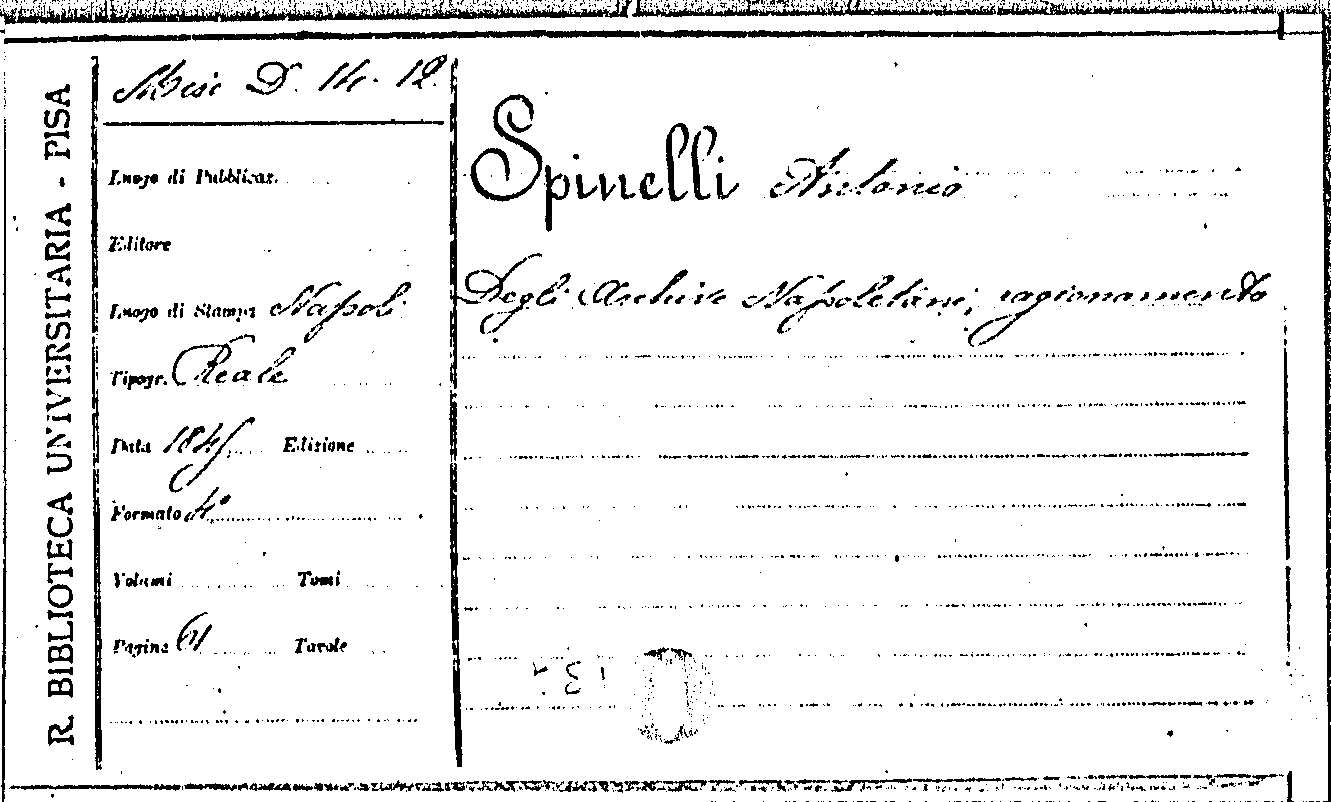 R. BIBLIOTECA UNIVERSITARIA - PISA
Misc D. 14. 12.
Luogo di Pubblicaz.
Editore
Luogo di Stampa Napoli
Tipogr. Reale
Data 1845 Edizione
Formato 4°
Volumi Tomi
Pagine 61 Tavole
Spinelli Antonio
Degli Archivi Napoletani, ragionamento